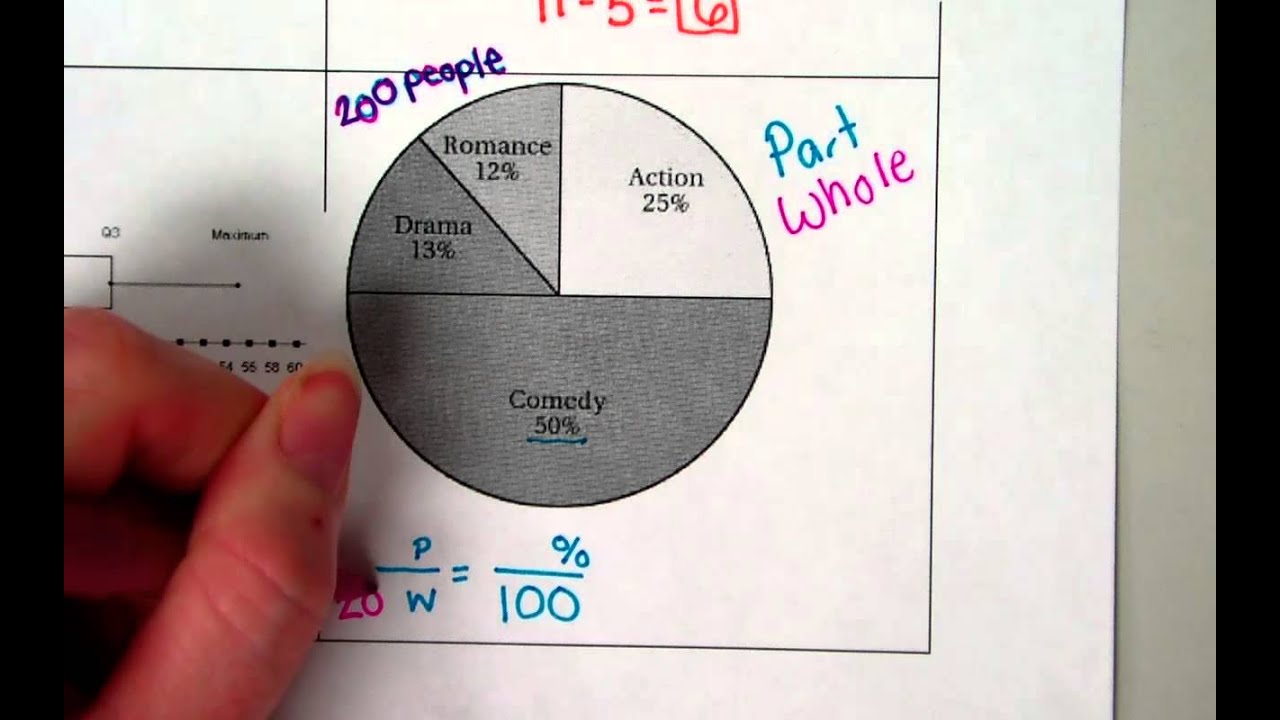 11 - 5 = 6
200 people
Part
Whole
Romance
12%
Action
25%
Drama
13%
Q3 Maximum
54 56 58 60
Comedy
50%
P/W = %/100
20